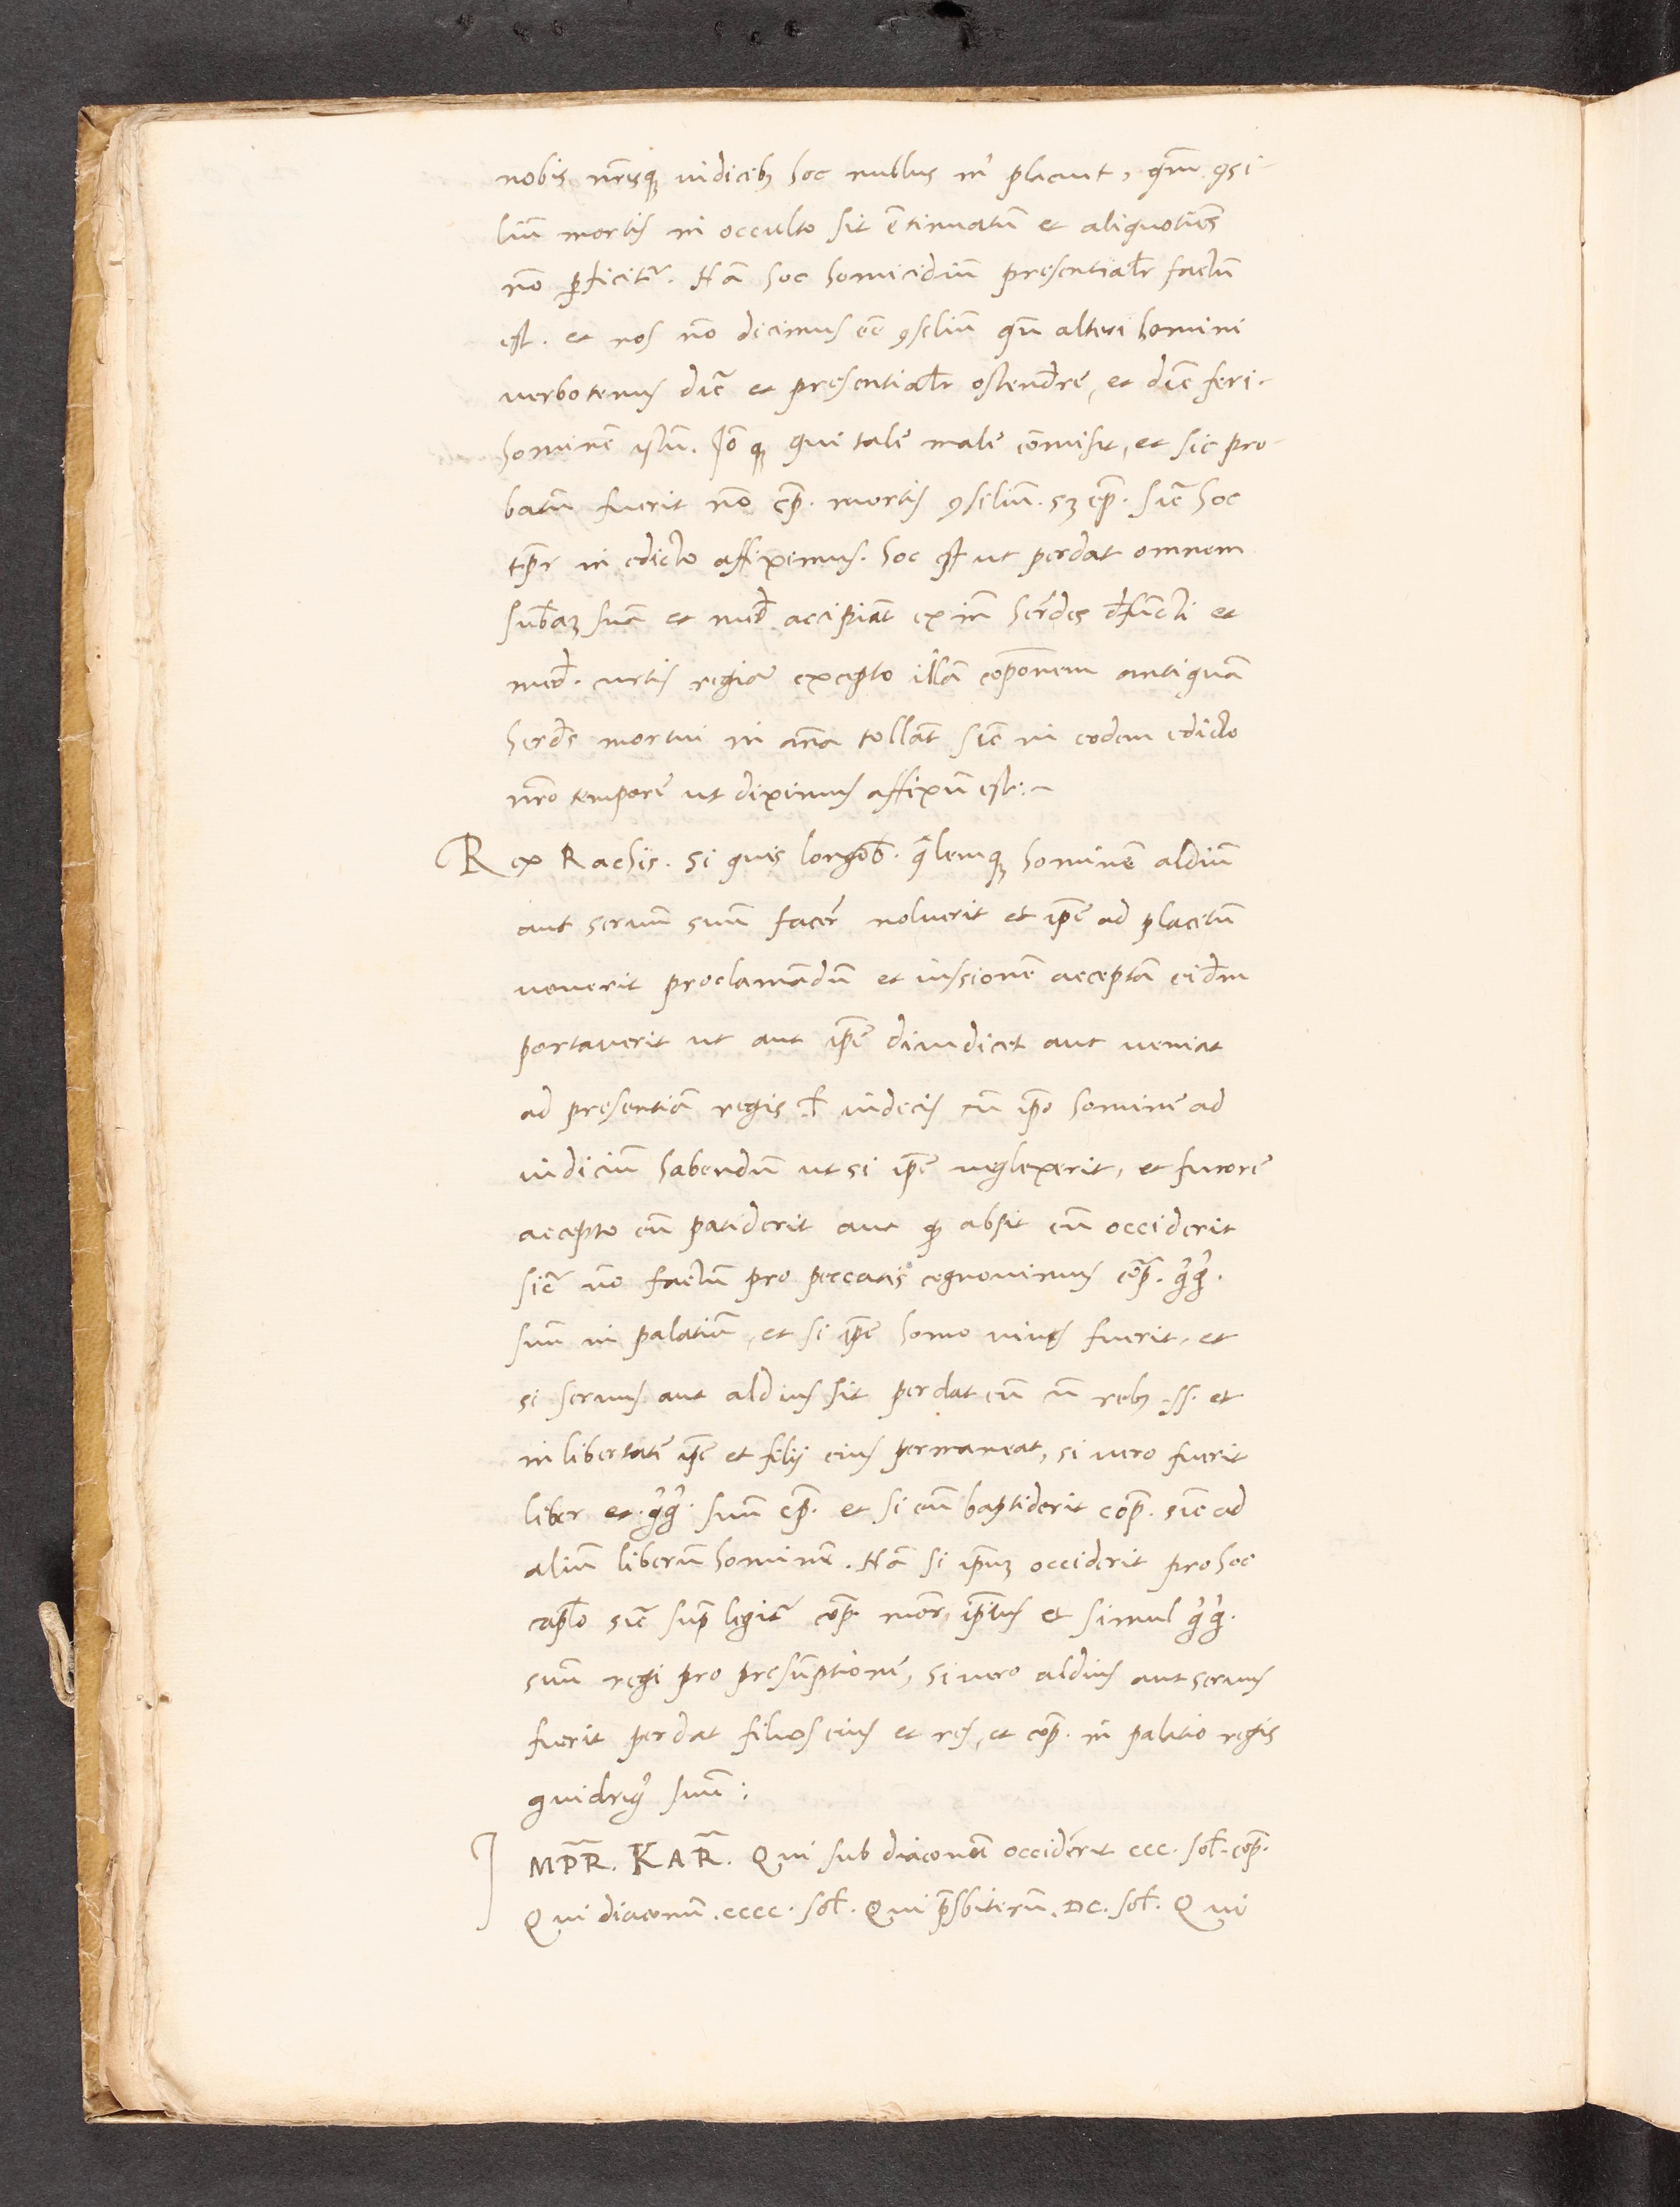 nobis nr̄isq; iudicib; hoc nullus m° placuit, qm̄ ꝯsi-
liū mortis in occulto sit c̄tinuatū et aliquotiēs
nō ꝑficit᷑. Nā hoc homicidiū presential̄r factū
est. et nos nō dicimus eē ꝯsiliū qn̄ alteri homini
verbotenus dic̄ et presential̄r ostenđre, et dic̄ feri-
hominē istū. Iō q; qui talē malū cōmisit, et sic pro-
batū fuerit nō cp̄. mortis ꝯsiliū. sꝫ cp̄. sic̄ hoc
tp̄r in edicto affiximus. hoc est ut perdat omnem
sub̄aꝫ suā et međ accipiāt ex īn herđes đfūcti et
međ. curtis regia excepto illā cōpōnem antiquā
herđs mortui in ān̄a tollāt sic̄ in eodem edicto
nr̄o temporē ut diximus affixū est:~
Rex Rachis. Si quis longob̄. q̄lemq; hominē aldiū
aut seruū suū facer̄ noluerit et ip̄e ad placitū
venerit proclamādū et iussionē acceptā eiđm
portaverit ut aut ip̄e diiudicet aut veniat
ad presentiā regis ł iudicis cū ip̄o homine ad
iudiciū habendū ut si ip̄e neglexerit, et furorē
accepto eū patiderit aut q; absit eū occiderit
sic̄ nō factū pro peccatis cognovimus cōp̄. g̊g̊.
suū in palatiū, et si ip̄e homo vivus fuerit, et
si servus aut aldius sit perdat eū cū reb; ss. et
in libertatē ip̄e et filij eius permaneat, si vero fuerit
liber et. g̊g̊. suū cp̄. et si eū baptiderit cop̄. sic̄ ad
aliū liberū hominē. Nā si ip̄uꝫ occiderit pro hoc
cap̄lo sic̄ sup̄ legit᷑ cop̄. mor̄. ip̄ius et simul g̊g̊.
suū regi pro presūptionē, si vero aldius aut servus
fuerit perdat filios eius et res, et cōp̄. in palatio regis
guidrig̊ suū:
IMP̄R. KAR̄. Qui sub diaconū occiderit ccc. sol̄. cop̄.
Qui diaconū. cccc. sol̄. Qui p̄sbiterū. DC. sol̄. Qui